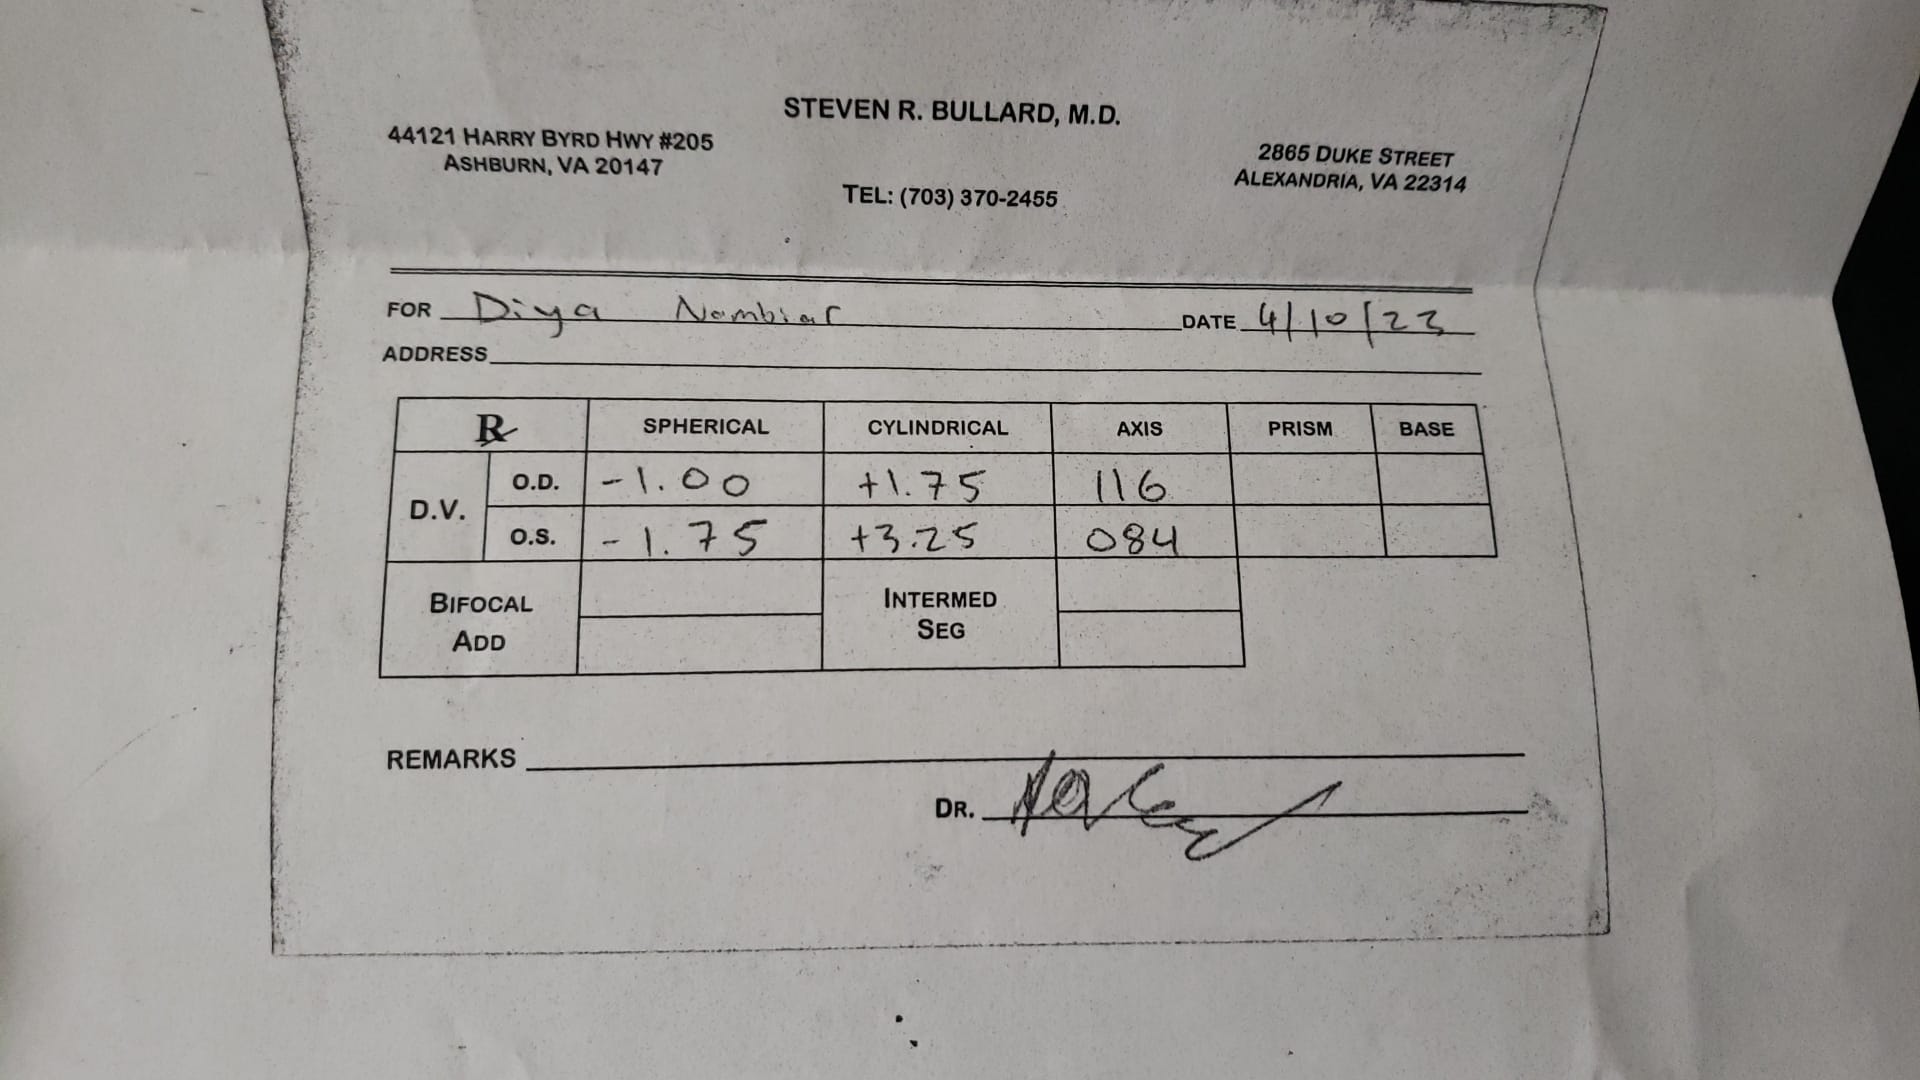 STEVEN R. BULLARD, M.D.
44121 HARRY BYRD HWY #205
ASHBURN, VA 20147
2865 DUKE STREET
ALEXANDRIA, VA 22314
TEL: (703) 370-2455
FOR Diya Nambiar DATE 4/10/23
ADDRESS
Rx SPHERICAL CYLINDRICAL AXIS PRISM BASE
D.V. O.D. -1.00 +1.75 116
O.S. -1.75 +3.25 084
BIFOCAL ADD INTERMED SEG
REMARKS
DR.